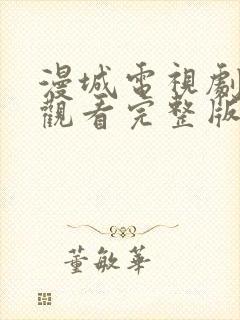 漫城電視劇
觀看完整版
董敏華